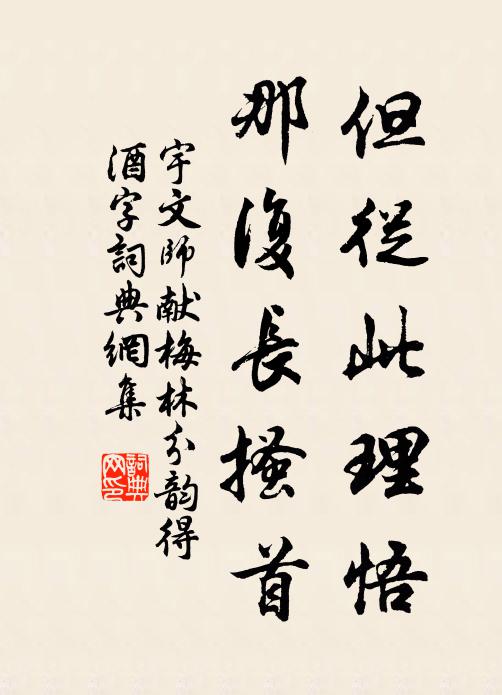 但從此理悟
那復長搔首
宇文師献梅林分韵得
酒字詞典網集
詞典网印